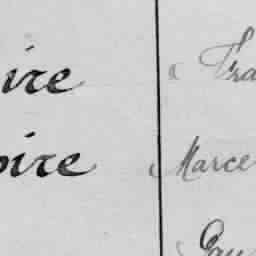 ire Fra
oire Marce
Pau